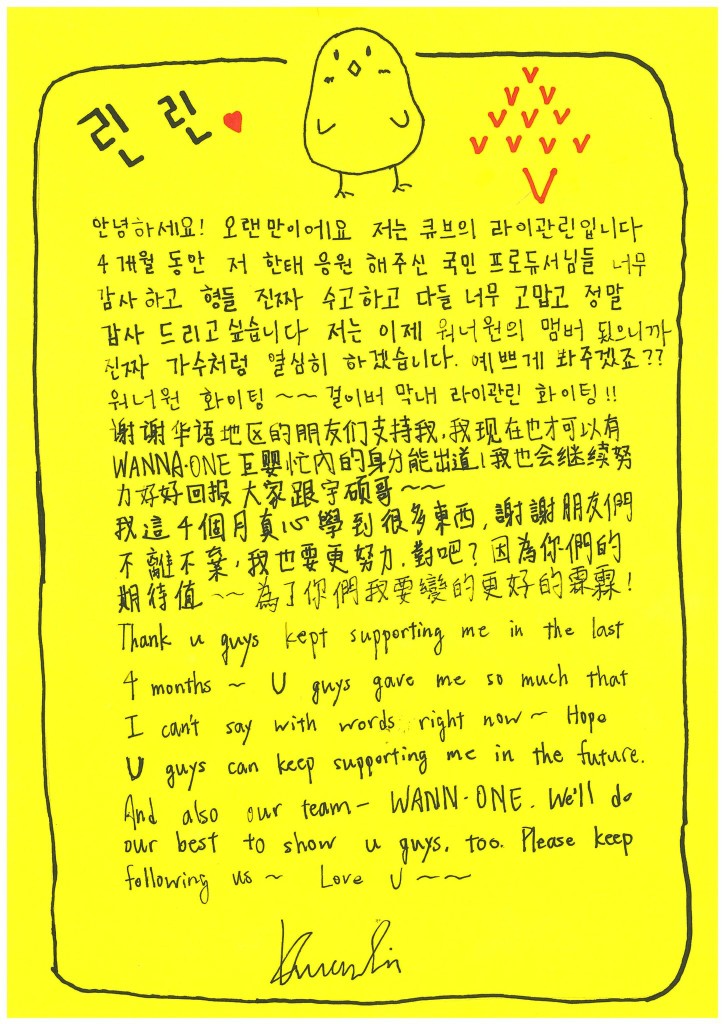 린 린
안녕하세요! 오랜만이에요 저는 큐브의 라이관린입니다
4개월 동안 저 한태 응원 해주신 국민 프로듀서님들 너무
감사하고 형들 진짜 수고하고 다들 너무 고맙고 정말
감사 드리고싶습니다 저는 이제 워너원의 맴버 됬으니까
진짜 가수처럼 열심히 하겠습니다. 예쁘게 봐주겠죠??
워너원 화이팅 ~~ 걸이버 막내 라이관린 화이팅!!
谢谢华语地区的朋友们支持我,我现在也才可以有
WANNA·ONE 巨婴忙内的身分能出道!我也会继续努
力好好回报大家跟宇硕哥~~
我這4個月真心學到很多東西,謝謝朋友們
不離不棄,我也要更努力.對吧?因為你們的
期待值 ~~ 為了你們我要變的更好的霖霖!
Thank u guys kept supporting me in the last
4 months ~ U guys gave me so much that
I can't say with words right now ~ Hope
U guys can keep supporting me in the future.
And also our team - WANN-ONE. We'll do
our best to show u guys, too. Please keep
following us ~ Love U ~~
Kuanlin